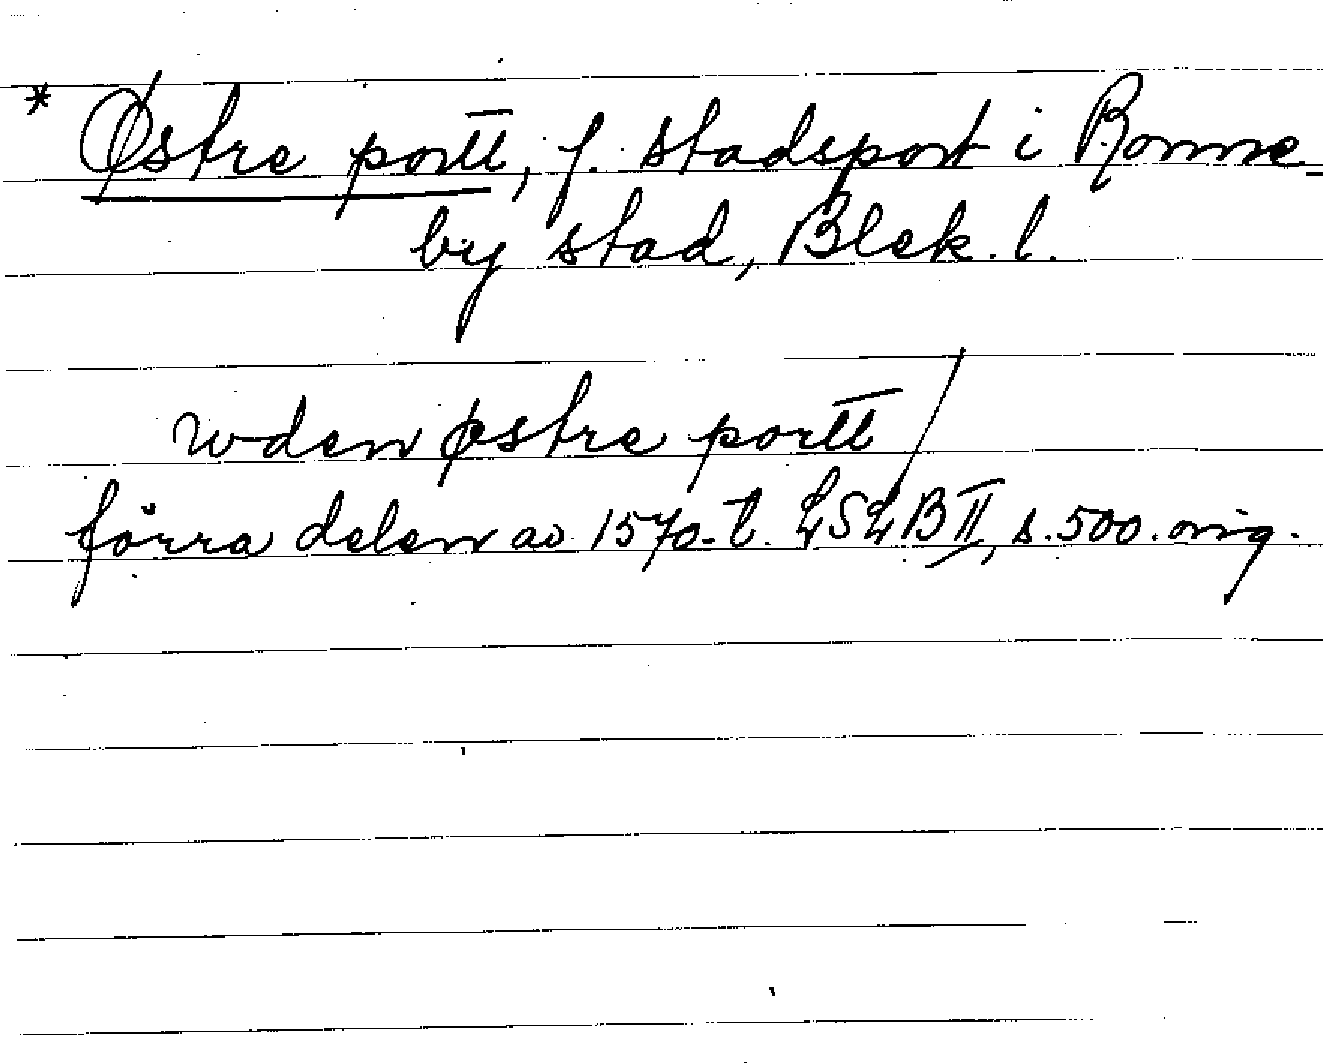 * Østre portt, f. stadsport i Ronne-
by stad, Blek. l.
wden østre portt/
förra delen av 1570-t. LSLB II, s. 500. orig.